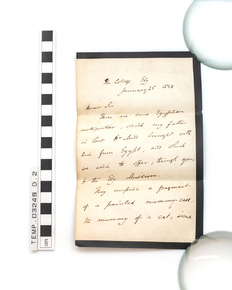 The College Ely
January 25 1898
Dear Sir
There are some Egyptian
antiquities, which my father
brought with
him from Egypt, and which
we wish to offer, through you,
to the Ely Museum.
They comprise a fragment
of a painted mummy-case,
the mummy of a cat, some
TEMP.D324B D.2